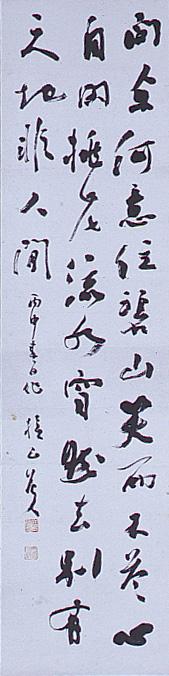 問余何意住碧山笑而不答心
自閑桃花流水窅然去別有
天地非人間 丙申春日作